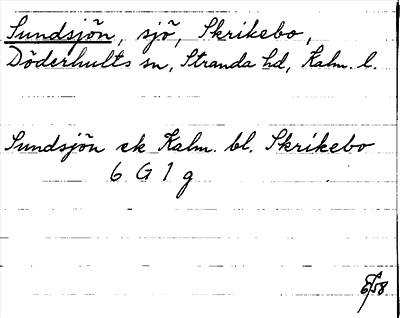 Sundsjön, sjö, Skrikebo,
Döderhults sn, Stranda hd, Kalm. l.
Sundsjön ek Kalm. bl. Skrikebo
6 G 1 g